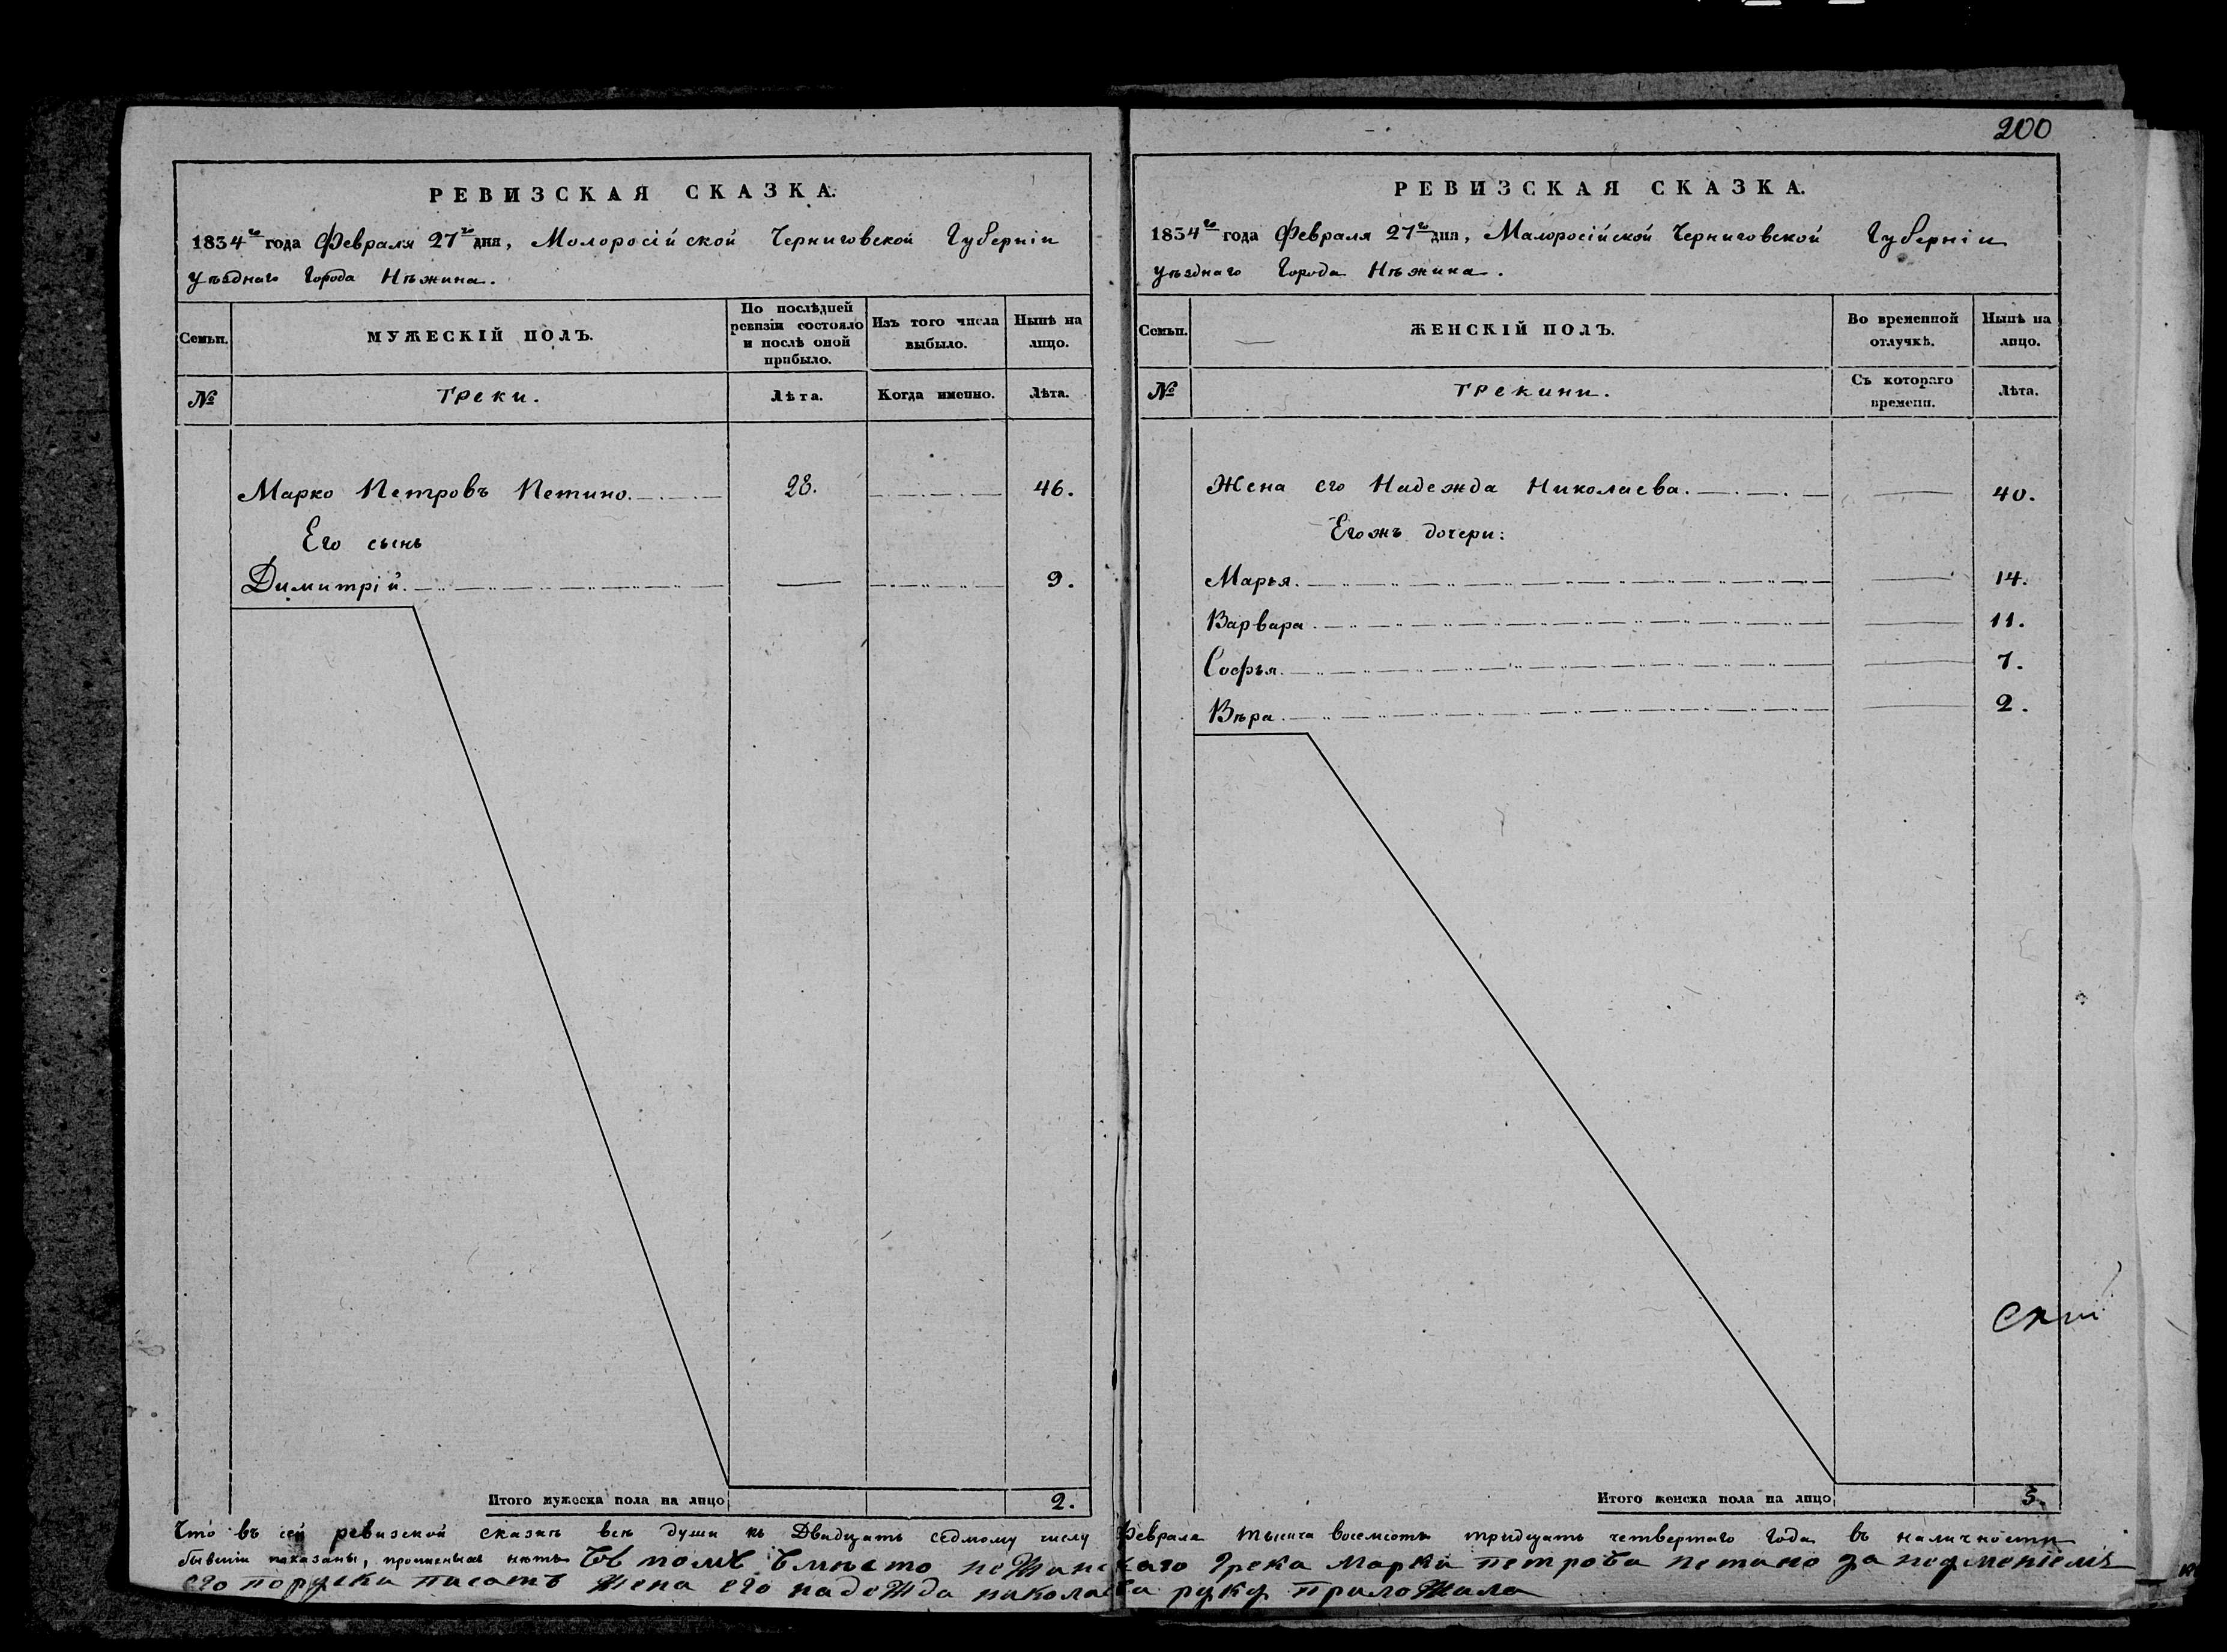 200
РЕВИЗСКАЯ СКАЗКА.
1834го года Февраля 27го дня, Молоросійской Черниговской Губерніи
уѣзднаго Города Нѣжина.
Семьи.
МУЖЕСКІЙ ПОЛЪ.
По послѣдней ревизіи состояло и послѣ оной прибыло.
Изъ того числа выбыло.
Нынѣ на лицо.
№
Греки.
Лѣта.
Когда именно.
Лѣта.
Марко Петровъ Петино. 28. 46.
Его сынъ
Димитрій. 9.
Итого мужеска пола на лицо 2.
РЕВИЗСКАЯ СКАЗКА.
1834го года Февраля 27го дня, Малоросійской Черниговской Губерніи
уѣзднаго Города Нѣжина.
Семьи.
ЖЕНСКІЙ ПОЛЪ.
Во временной отлучкѣ.
Нынѣ на лицо.
№
Грекини.
Съ котораго времени.
Лѣта.
Жена его Надежда Николаева. 40.
Егожъ дочери:
Марья. 14.
Варвара. 11.
Софья. 7.
Вѣра. 2.
Итого женска пола на лицо 5.
Что въ сей ревизской сказкѣ всѣ души къ Двадцать седмому числу Февраля тысяча восемсотъ тридцать четвертаго года въ наличности
бывшіи показаны, прописныхъ нѣтъ Въ томъ вмѣсто неЖинскаго Грека Марка петрова петино за неуменіемъ
его поруски писать Жена его надеЖда николаева руку прилоЖила